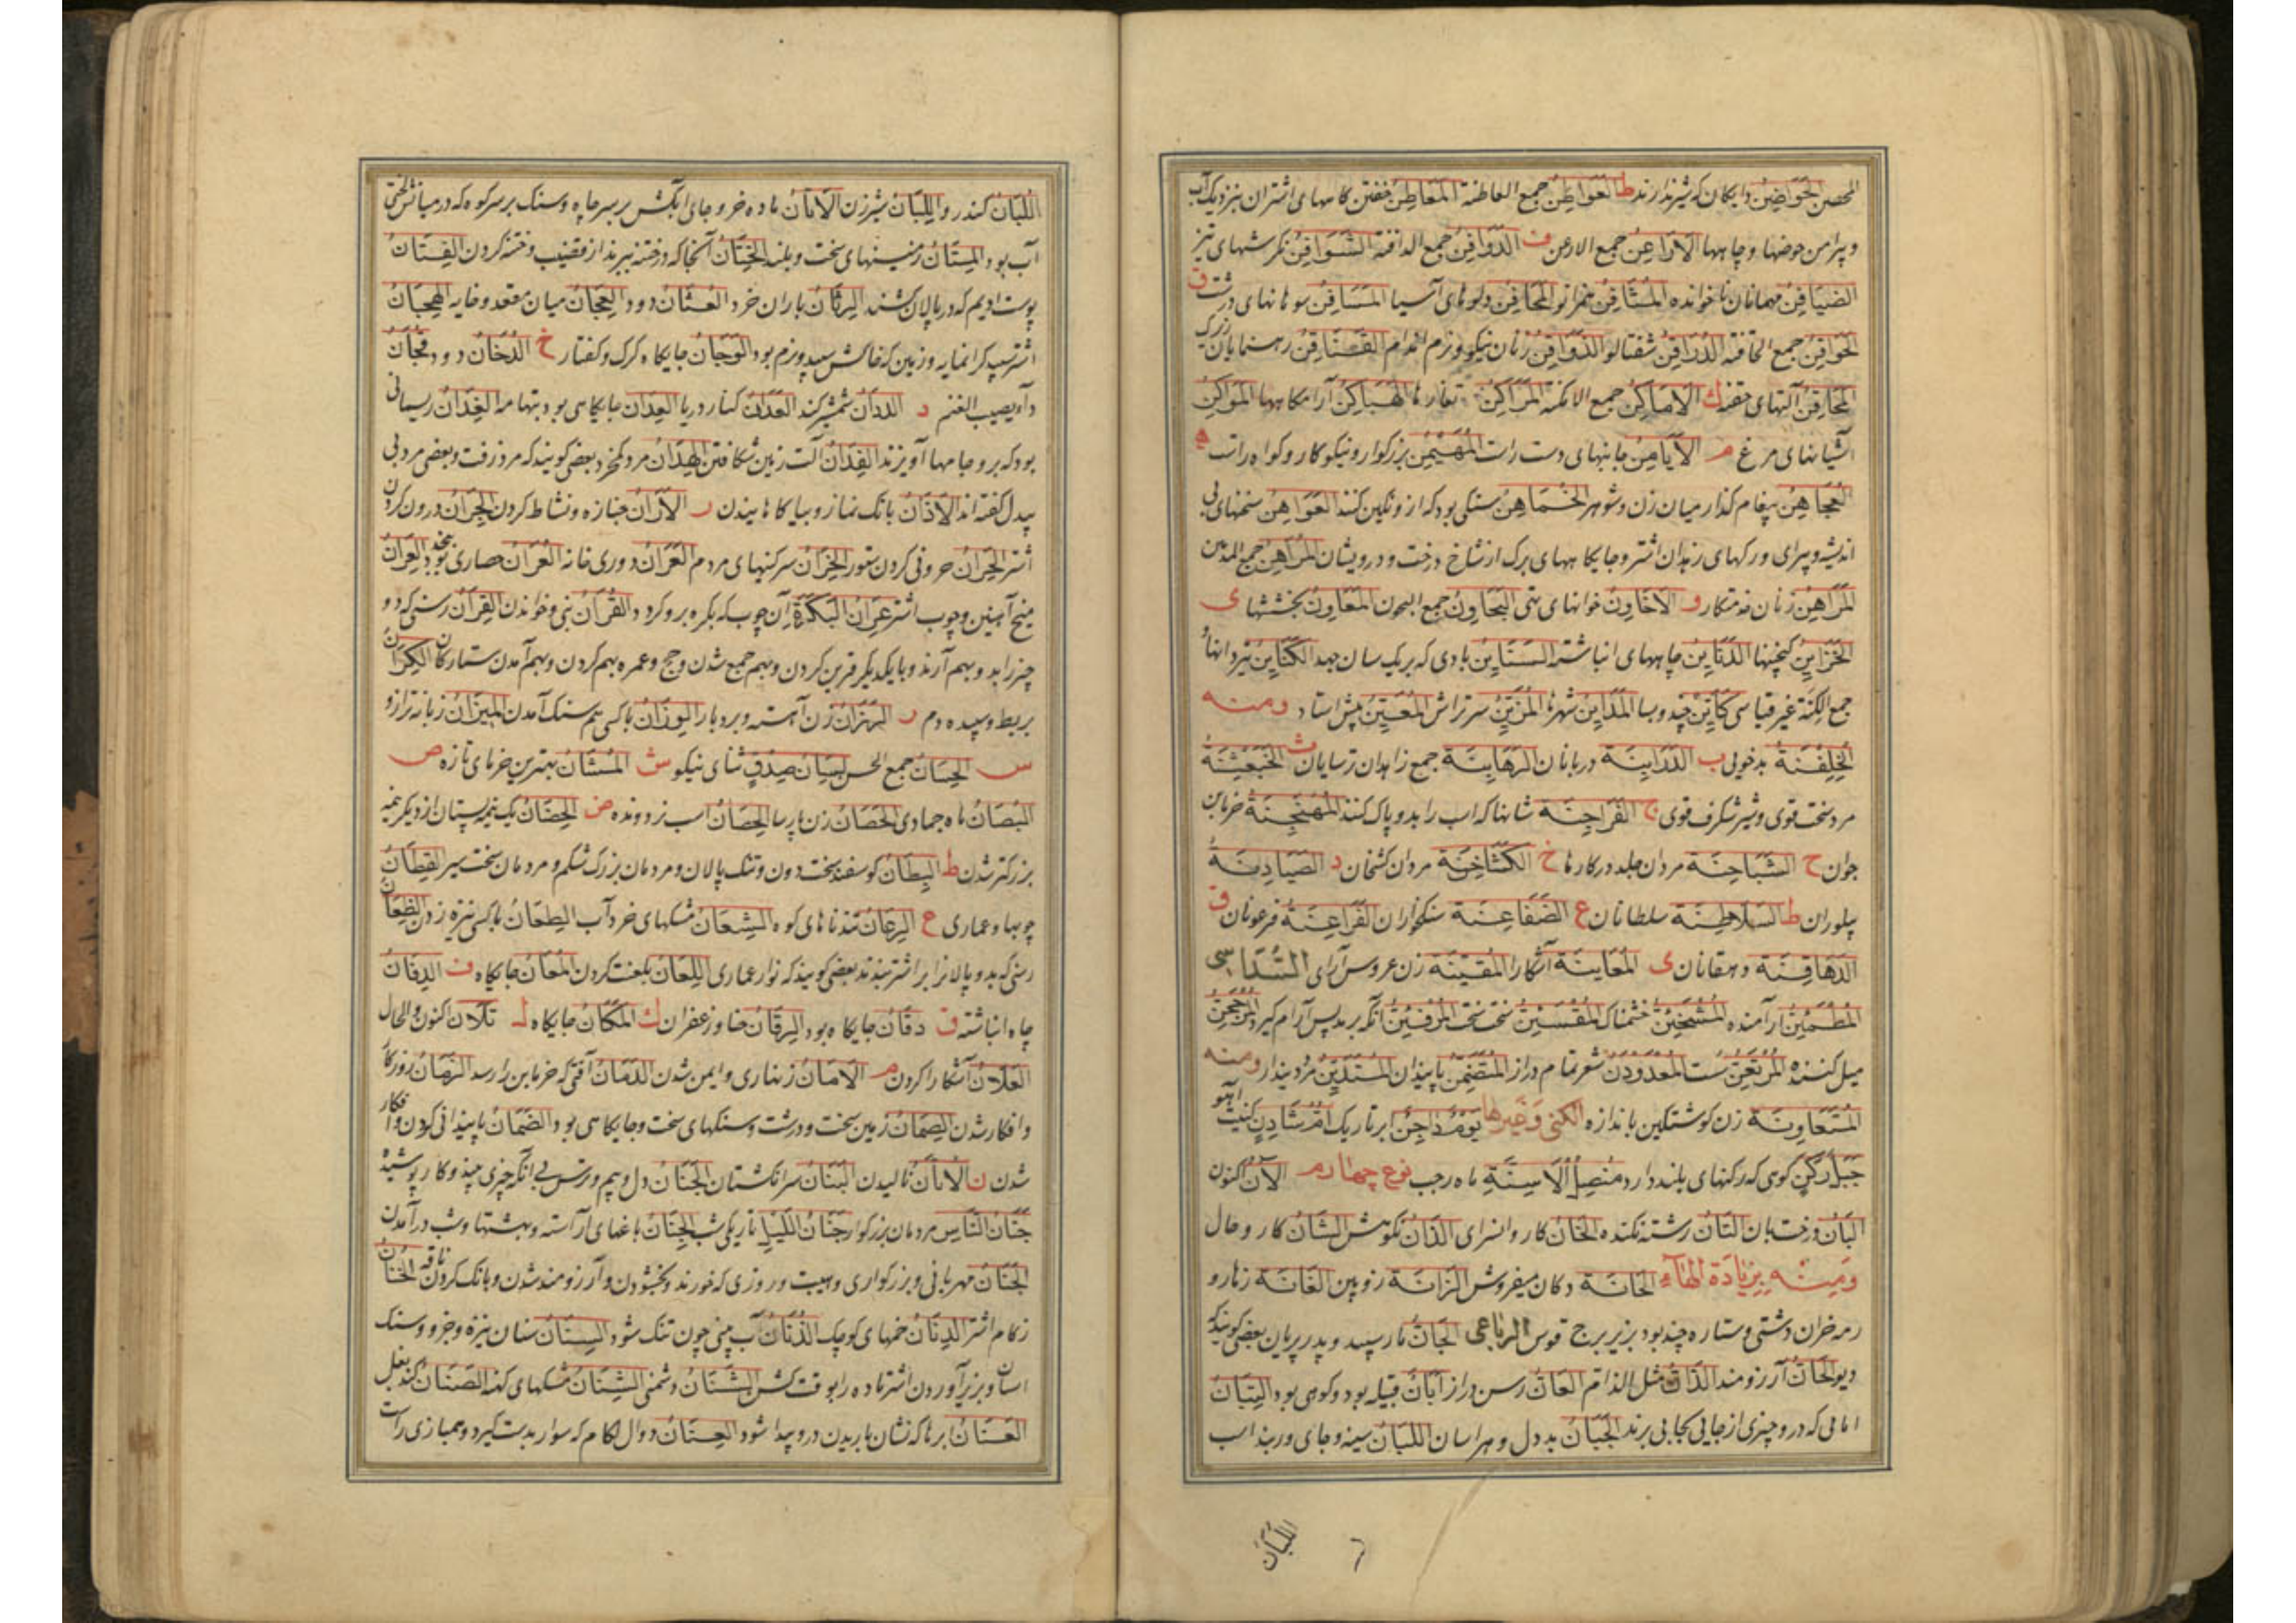 المحصن الحَوَاضِنُ دایکان که شیر ندارند ط العَوَاطِنُ جمع العاطنة المَعَاطِنُ خفتن کاههای اشتران بنزدیک آب
و پیرامن حوضها و چاهها الاَرَاعِنُ جمع الارعن ف الدَّوَافِنُ جمع الدافنة الشَّوَافِنُ نکرشهای تیز
الضَّيَافِنُ مهمانان ناخوانده المُثَافِنُ همزانو المَحَافِنُ دلوهای آسیا المَسَافِنُ سوهانهای درشت ق
الحَوَاقِنُ جمع الحاقنة الدُّرَاقِنُ شفتالو الذَّوَاقِنُ زنان نیکو و نرم اندام القَصَاقِنُ رهنمایان بزرک
المَحَاقِنُ آلتهای حقنه ك الاَمَاكِنُ جمع الامکنة المَرَاكِنُ تغارها الهَبَاكِنُ آرامکاهها المَوَاكِنُ
آشیانهای مرغ م الاَيَامِنُ جانبهای دست راست المُهَيْمِنُ بزرکوار و نیکوکار و کواه راست ه
العُجَاهِنُ پیغام کذار میان زن و شوهر الخُمَاهِنُ سنکی بود که از و نکین کنند العَوَاهِنُ سخنهای بی
اندیشه و پیرای و رکهای زهدان اشتر و جایکاههای برک از شاخ درخت و درویشان المَدَاهِنُ جمع المدهن
المَرَاهِنُ زنان خدمتکار و الاَخَاوِنُ خوانهای تهی البَحَاوِنُ جمع البحون المَعَاوِنُ بخششها ی
الخَزَايِنُ کنجینها الدَّفَايِنُ چاههای انباشته السَّنَايِنُ بادی که بر یک سان جهد الكَنَايِنُ تیردانها و
جمع الکنة غیر قیاسی كَايِنْ چند و بسا المَدَايِنُ شهرها المُزَيِّنُ سرتراش المُعَيَّنُ پیش استاد ومنه
الخِلَفْنَةُ بدخویی ب الدَّرَابِنَة دربانان الرَّهَابِنَة جمع زاهدان ترسایان ث الخُبَعْثِنَةُ
مرد سخت قوی و شیر شکرف قوی ج الفَرَاجِنَة شانها که اسب را بدو پاک کنند المُهْتَجِنَة خرمابن
جوان ح الشَّبَاحِنَة مردان جلد در کارها خ الكَشَاخِنَة مردان کشخان د الصَّيَادِنَةُ
پیلوران ط السَّلَاطِنَة سلطانان ع الضَّفَاعِنَة سنکخواران الفَرَاعِنَةُ فرعونان ق
الدَّهَاقِنَة دهقانان ی المُعَايَنَة آشکارا المُقَيِّنَة زن عروس آرای السُّدَاسِی
المُطْمَئِنُّ آرامنده المُشْمَئِنُّ خشمناک المُقْسَئِنُّ سخت سخت المُرْفَئِنُّ آنکه برمد پس آرام کیرد المُرْجَحِنُّ
میل کننده المُرْثَعِنُّ سست المُغْدَوْدِنُ شعر تمام دراز المُتَضَمِّنُ پایندان المُتَدَيِّنُ مرد دیندار ومنه
المُتَعَاوِنَة زن کوشتکین باندازه الکنی وَغَیرها يَوْمٌ دَاجِنٌ ابر تاریک اُمُّ شَادِنٍ کنیت آهو
جَبَلٌ رَكِنٌ کوهی که رکنهای بلند دارد مُنْصِلُ الْاَسِنَّةِ ماه رجب نوع چهارم الآنَ اکنون
البَانُ درخت بان التَّانُ رشته نکنده الخَانُ کاروانسرای الذَّانُ نکوهش الشَّانُ کار و حال
وَمِنْهُ بِزِيَادَةِ الهَاءِ الحَانَة دکان میفروش الزَّانَة زوبین العَانَة زهار و
رمه خران دشتی و ستاره چند بود بزیر برج قوس الرباعی الجَانُّ مار سپید و پدر پریان بعضی کویند که
دیو الحَانُّ آرزومند الذَّانُّ مثل الذام العَانُّ رسن دراز اَبَانُ قبیله بود و کوهی بود الثِّبَانُ
امامی که درو چیزی از جایی بجایی برند الجَبَانُ بد دل و هراسان اللَّبَانُ سینه و جای وربند اسب
اللبان
اللُّبَانُ کندر و اللِّبَانُ شیر زن الاَتَانُ ماده خر و جای آبکش بر سر چاه و سنک بر سر کوه که در میانش لختی
آب بود المِتَانُ زمینهای سخت و بلند الخِتَانُ آنجا که ختنه ببرند از قضیب و ختنه کردن الفِتَانُ
پوست ادیم که در پالان کشند الرِثَانُ باران خرد العُثَانُ دود العِجَانُ میان مقعد و خایه الهِجَانُ
اشتر سپید کرانمایه و زمین که خاکش سپید و نرم بود الوَجَانُ جایکاه کرک و کفتار خ الدُّخَانُ دود دخَانُ
دآو یصیب الغنم د الدَّدَانُ شمشیر کند العَدَانُ کنار دریا العِدَانُ جایکاهی بود بتهامه الغِدَانُ ریسمانی
بود که برو جامها آویزند الفِدَانُ آلت زمین شکافتن الهِدَانُ مرد کمخرد بعضی کویند که مرد زفت و بعضی مرد بی
بیدل کفته اند الاَذَانُ بانک نماز و بیاکاهانیدن ر الاَرَانُ جنازه و نشاط کردن الجِرَانُ درون کردن
اشتر الحِرَانُ حرونی کردن ستور الخِرَانُ سرکنیهای مردم العَرَانُ دوری خانه العُرَانُ حصاری بود بنجد العِرَانُ
میخ آهنین و چوب اشتر عِرَانُ البَكْرَةِ آن چوب که بکره برو کردد القُرْآنُ نبی و خواندن القِرَانُ رسنی که دو
چیز را بدو بهم آرند و با یکدیکر قرین کردن و بهم جمع شدن و حج و عمره بهم کردن و بهم آمدن ستارکان الكِرَانُ
بربط و سپیده دم ز الرَّزَانُ زن آهسته و بردبار الوِزَانُ با کسی هم سنک آمدن المِيزَانُ زبانه ترازو
س الحِسَانُ جمع الحسن لِسَانُ صِدْقٍ ثنای نیکو ش المُشَانُ بهترین خرمای تازه ص
البُصَانُ ماه جمادی الحَصَانُ زن پارسا الحِصَانُ اسب نر دونده ض الحِضَانُ یک نیمه پستان از دیکر نیمه
بزرکتر شدن ط البِطَانُ کوسفند سخت دون و تنک پالان و مردمان بزرک شکم و مردمان سخت سیر القِطَانُ
چوبها و عماری ع الرِعَانُ تندناهای کوه الشِعَانُ مشکهای خرد آب الطِعَانُ با کسی نیزه زدن الظِعَانُ
رسنی که بدو پالانرا بر اشتر بندند بعضی کویند که نوار عماری اللِعَانُ بلعنت کردن المَعَانُ جایکاه ف الدِفَانُ
چاه انباشته ق دقَانُ جایکاه بود الرِقَانُ حنا و زعفران ك المَكَانُ جایکاه ل تَلَانَ اکنون والحال
العَلَانُ آشکارا کردن م الاَمَانُ زینهاری و ایمن شدن الدَمَانُ آفتی که خرمابن را رسد الزَمَانُ روزکار
و افکار شدن الصِمَانُ زمین سخت و درشت و سنکهای سخت و جایکاهی بود الضَمَانُ پایندانی کردن و افکار
شدن ن الاُنَانُ نالیدن البَنَانُ سر انکشتان الجَنَانُ دل و بیم و ترس بی آنکه چیزی بیند و کار پوشیده
جَنَانُ النَّاسِ مردمان بزرکوار جَنَانُ اللَّيْلِ تاریکی شب الجِنَانُ باغهای آراسته و بهشتها و شب درآمدن
الحَنَانُ مهربانی و بزرکواری و هیبت و روزی که خورند و بخشودن و آرزومند شدن و بانک کردن ناقه الخُنَانُ
زکام اشتر الدِنَانُ خمهای کوچک الذُنَانُ آب بینی چون تنک شود السِنَانُ سنان نیزه و جزو و سنک
اسان و بزیر آوردن اشتر ماده را بوقت کشن الشَنَانُ دشمنی الشِنَانُ مشکهای کهنه الصُنَانُ کند بغل
العَنَانُ ابر ها که نشان باریدن درو پیدا شود العِنَانُ دوال لکام که سوار بدست کیرد و همبازی راست